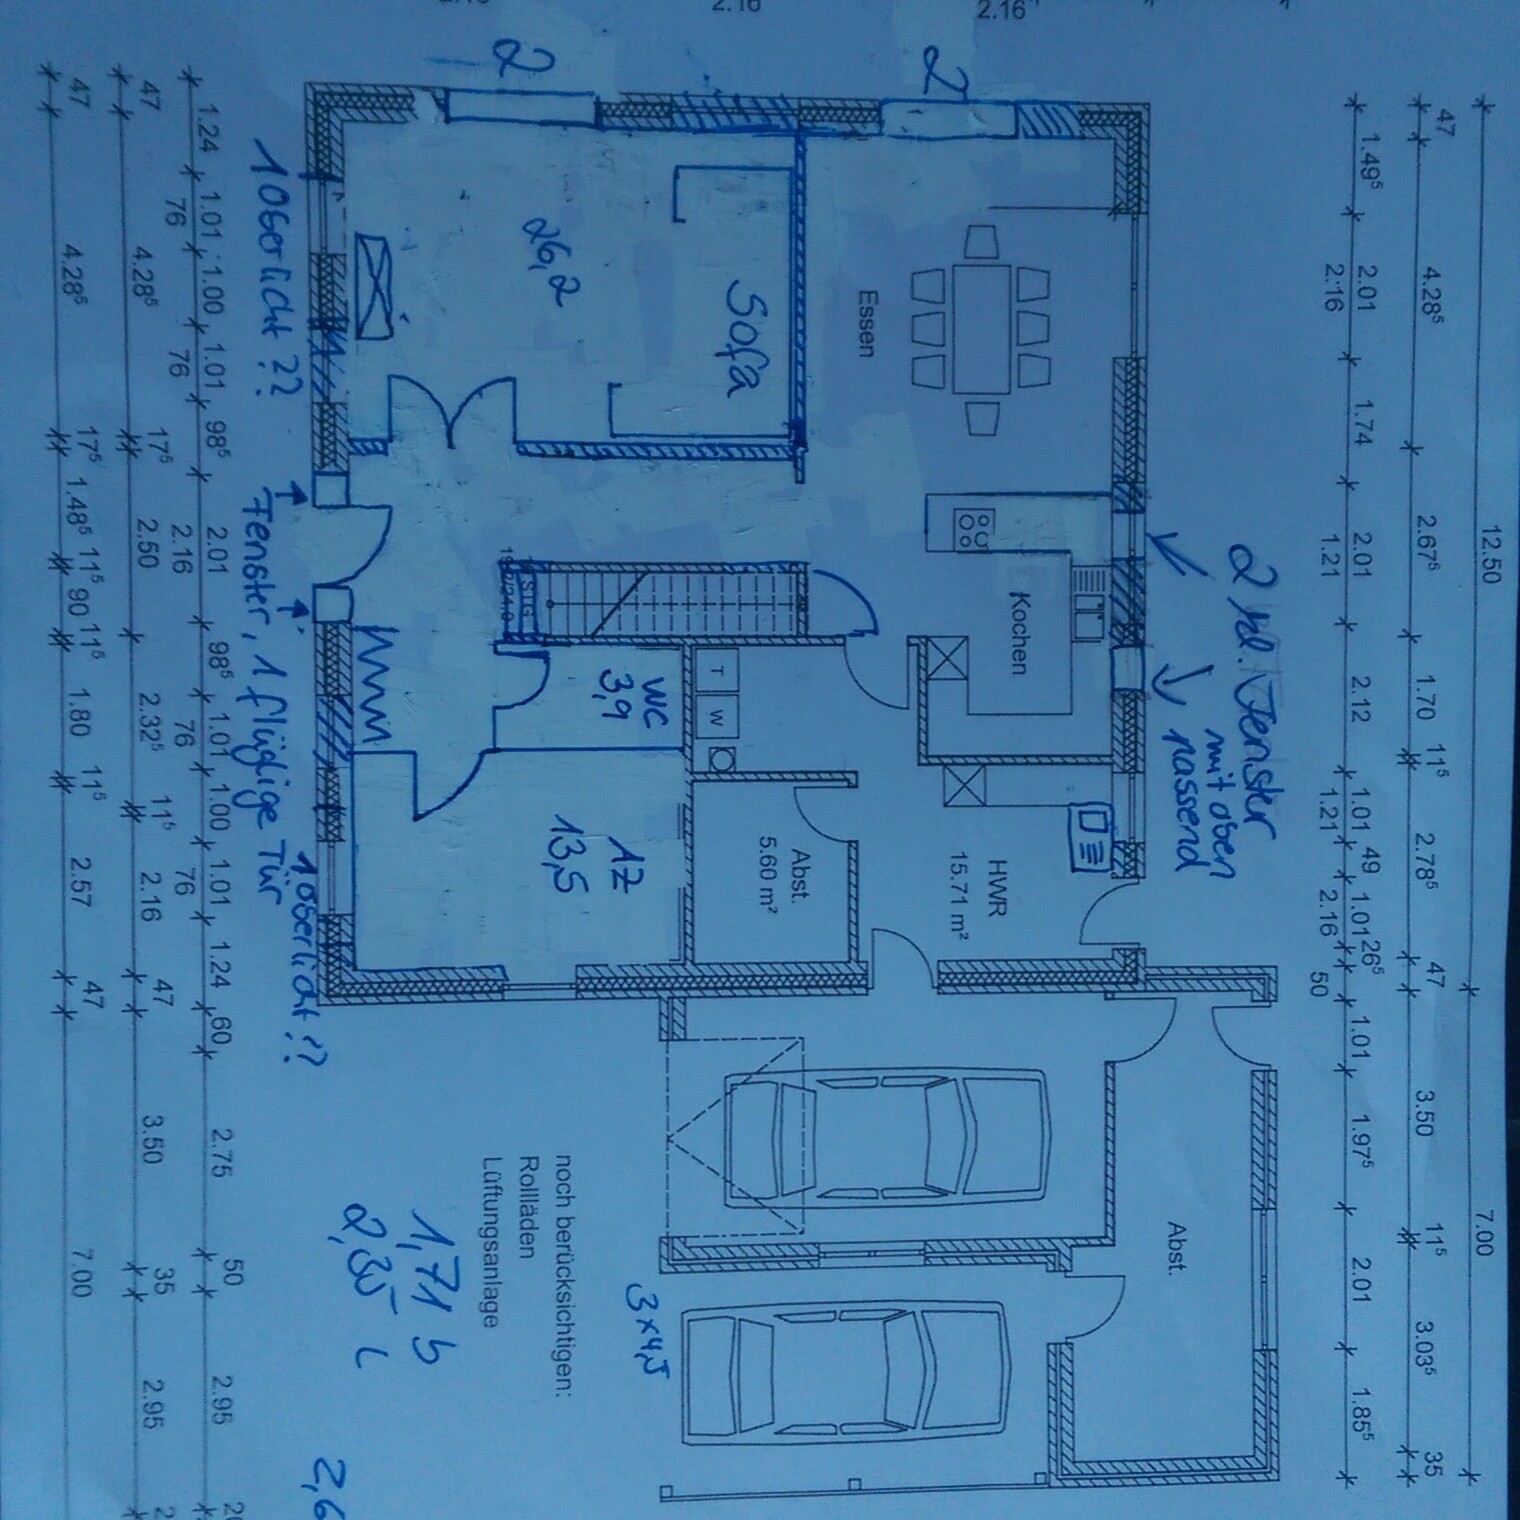 12.50
7.00
47
4.28⁵
2.67⁵
1.70
11⁵
2.78⁵
47
3.50
11⁵
3.03⁵
35
1.49⁵
2.01
2.16
1.74
2.01
1.21
2.12
1.01
1.21
49
1.01
2.16
26⁵
50
1.01
1.97⁵
2.01
1.85⁵
2 kl. Fenster
mit oben
passend
2
2
2.16
2.16
Essen
Kochen
HWR
15.71 m²
Abst.
5.60 m²
Abst.
T
W
Sofa
26,2
WC
3,9
1Z
13,5
STG
noch berücksichtigen:
Rollläden
Lüftungsanlage
3x4,5
1,71 b
2,35 L
2,6
1 Oberlicht ??
Fenster, 1 flüglige Tür
1 Oberlicht ??
1.24
1.01
76
1.00
1.01
76
98⁵
2.01
2.16
98⁵
1.01
76
1.00
1.01
76
1.24
60
2.75
50
2.95
47
4.28⁵
17⁵
2.50
2.32⁵
11⁵
2.16
47
3.50
35
2.95
47
4.28⁵
17⁵
1.48⁵
11⁵
90
11⁵
1.80
11⁵
2.57
47
7.00